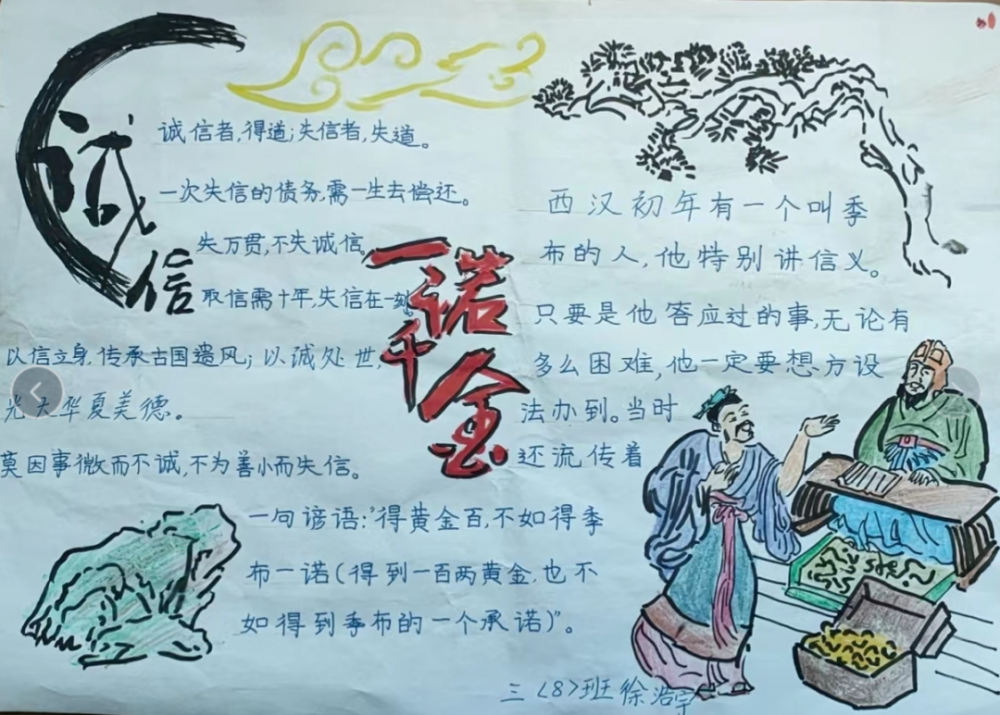 诚信
诚信者,得道;失信者,失道。
一次失信的债务,需一生去偿还。
失万贯,不失诚信。
取信需十年,失信在一刻。
以信立身,传承古国遗风;以诚处世,
光大华夏美德。
莫因事微而不诚,不为善小而失信。
一诺千金
西汉初年有一个叫季
布的人,他特别讲信义。
只要是他答应过的事,无论有
多么困难,他一定要想方设
法办到。当时
还流传着
一句谚语:“得黄金百,不如得季
布一诺(得到一百两黄金,也不
如得到季布的一个承诺)”。
三(8)班 徐浩宇